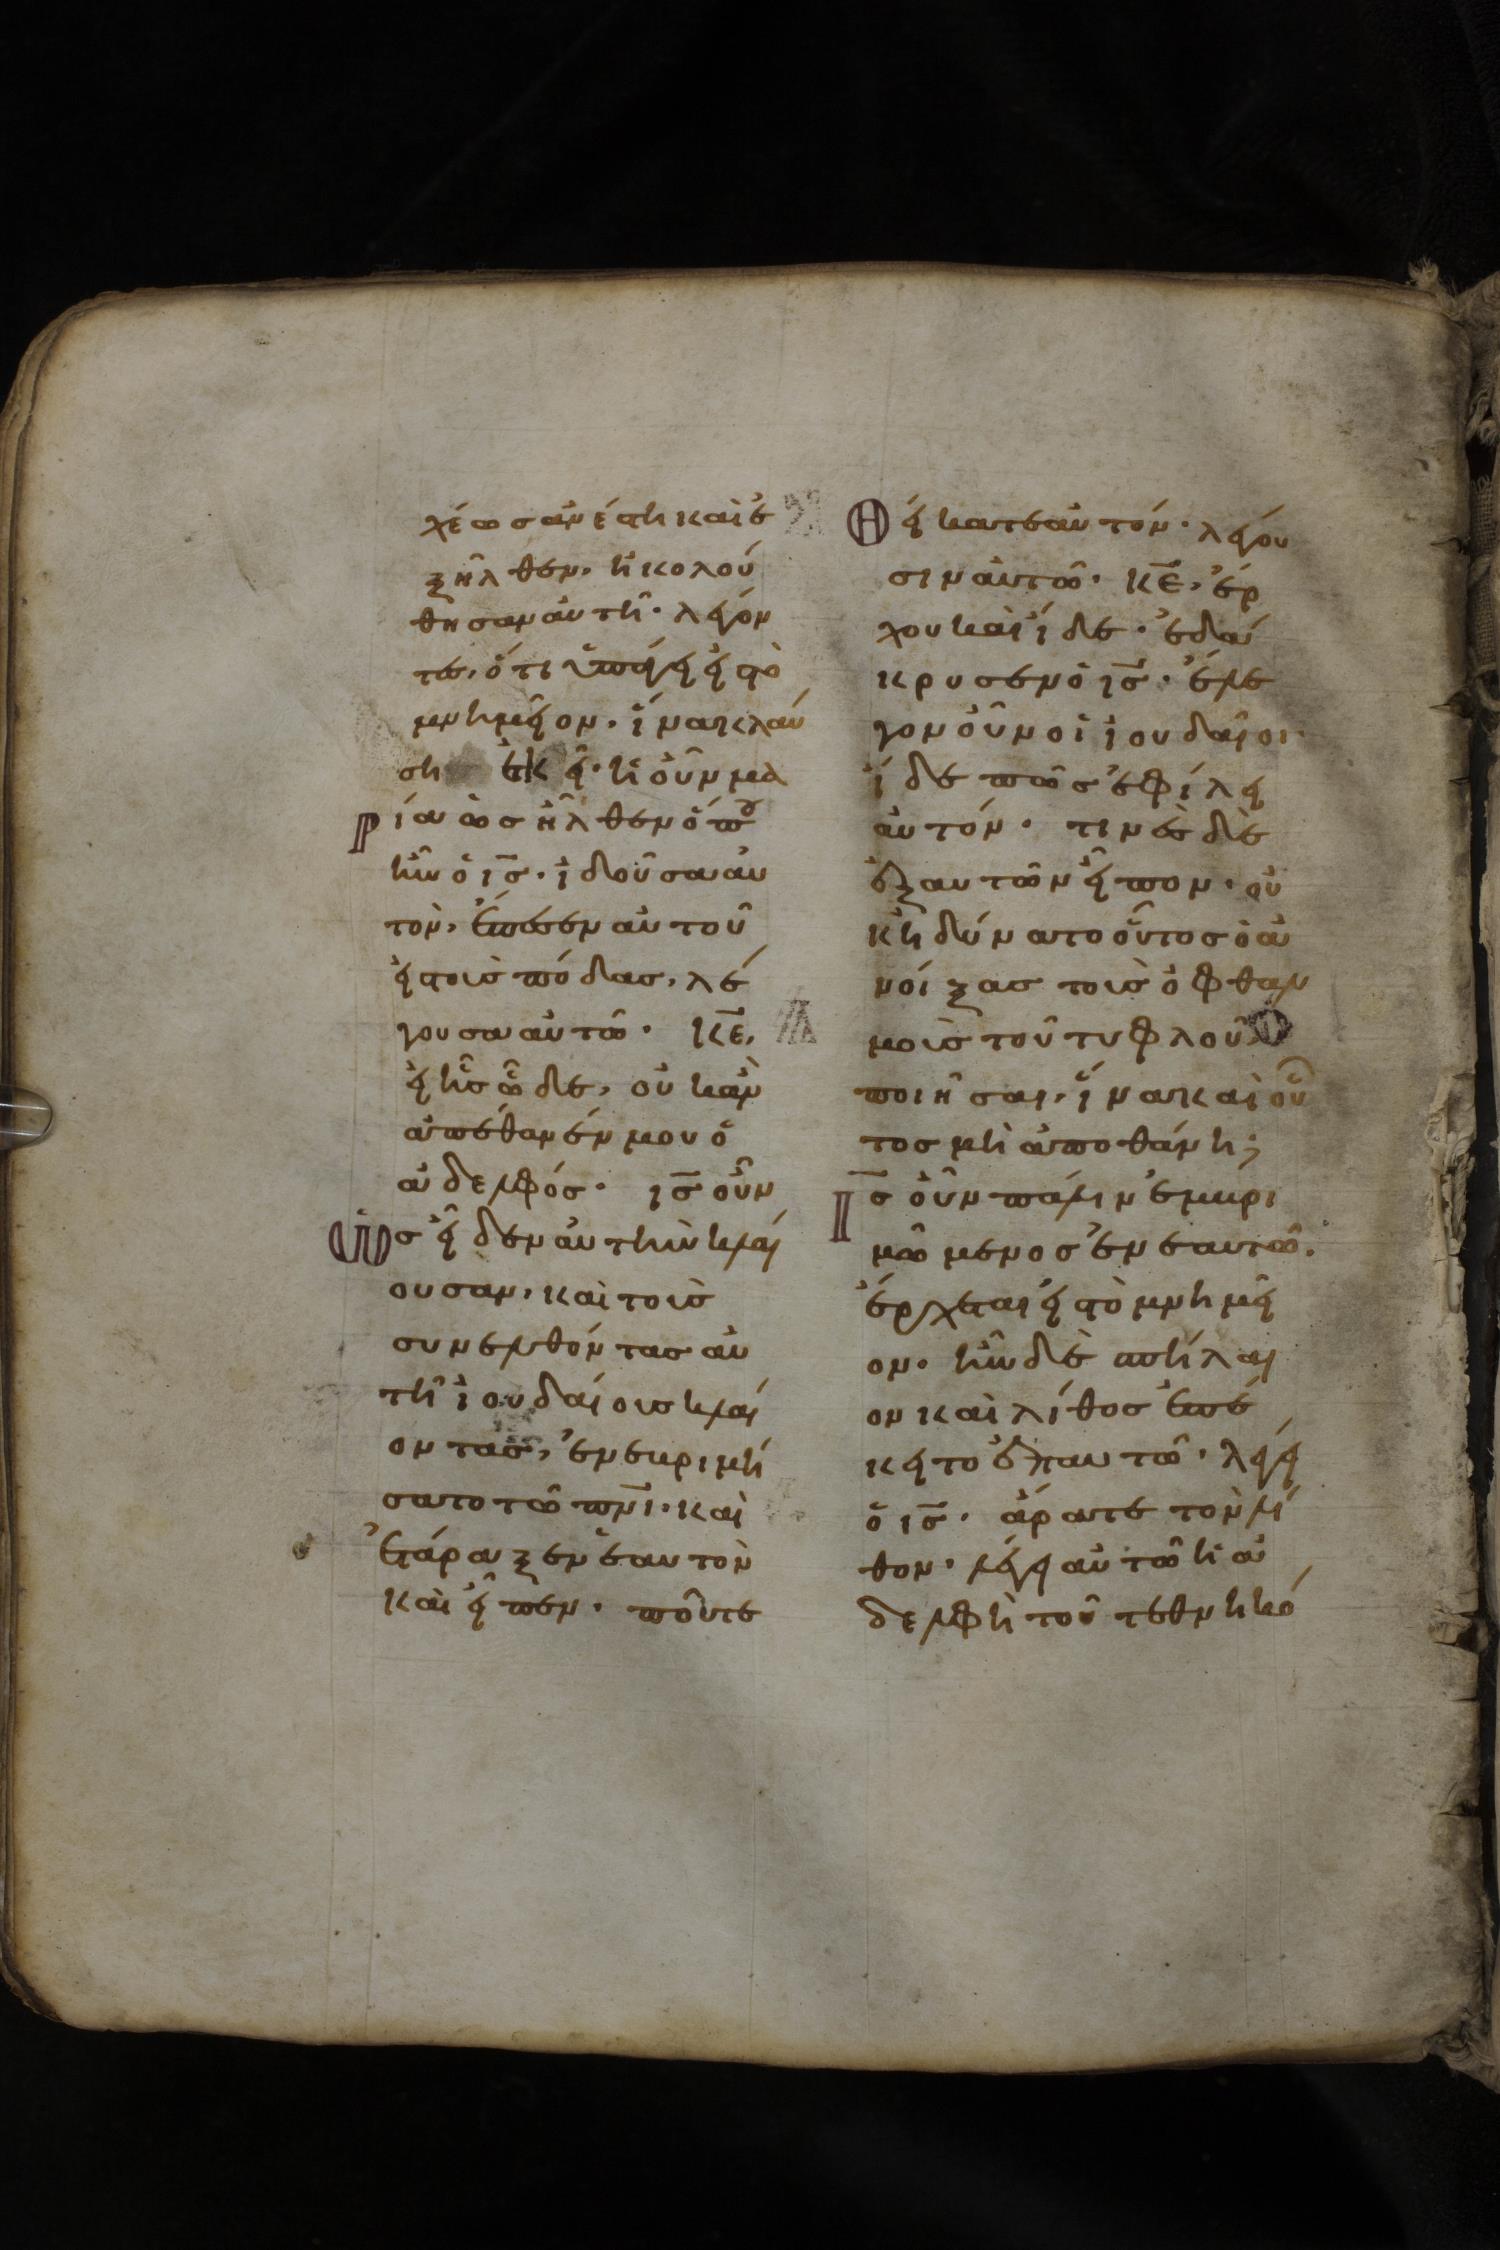 χέωσ ἀνέστη καὶ ἐ
ξῆλθεν, ἠκολού
θησαν αὐτῆ· λέγον
τες, ὅτι ὑπάγει εἰς τὸ
μνημεῖον, ἵνα κλαύ
ση ἐκεῖ· ἡ οὖν μα
ρία ὡσ ἦλθεν ὅπου
ἦν ὁ ις· ἰδοῦσα αὐ
τὸν, ἔπεσεν αὐτοῦ
εἰς τοὺσ πόδασ, λέ
γουσα αὐτῶ· κε,
εἰ ἦσ ὧδε, οὐκ ἂν
ἀπέθανέν μου ὁ
ἀδελφόσ· ισ οὖν
ὡσ εἶδεν αὐτὴν κλαί
ουσαν, καὶ τοὺσ
συνελθόντασ αὐ
τῆ ἰουδαίουσ κλαί
οντασ, ἐνεβριμή
σατο τῶ πνι· καὶ
ἐτάραξεν ἑαυτὸν
καὶ εἶπεν· ποῦ τε
θείκατε αὐτόν· λέγου
σιν αὐτῶ· κε, ἔρ
χου καὶ ἴδε· ἐδά
κρυσεν ὁ ισ· ἔλε
γον οὖν οἱ ἰουδαῖοι·
ἴδε πῶσ ἐφίλει
αὐτόν· τινὲσ δὲ
ἐξ αὐτῶν εἶπον· οὐ
κ ἠδύνατο οὗτοσ ὁ ἀ
νοίξασ τοὺσ ὀφθαλ
μοὺσ τοῦ τυφλοῦ
ποιῆσαι, ἵνα καὶ οὗ
τοσ μὴ ἀποθάνη;
ισ οὖν πάλιν ἐμβρι
μώμενοσ ἐν ἑαυτῶ.
ἔρχεται εἰς τὸ μνημεῖ
ον· ἦν δὲ σπήλαι
ον καὶ λίθοσ ἐπέ
κειτο ἐπ αυτῶ· λέγει
ὁ ισ· ἄρατε τὸν λί
θον· λέγει αὐτῶ ἡ ἀ
δελφὴ τοῦ τεθνηκό